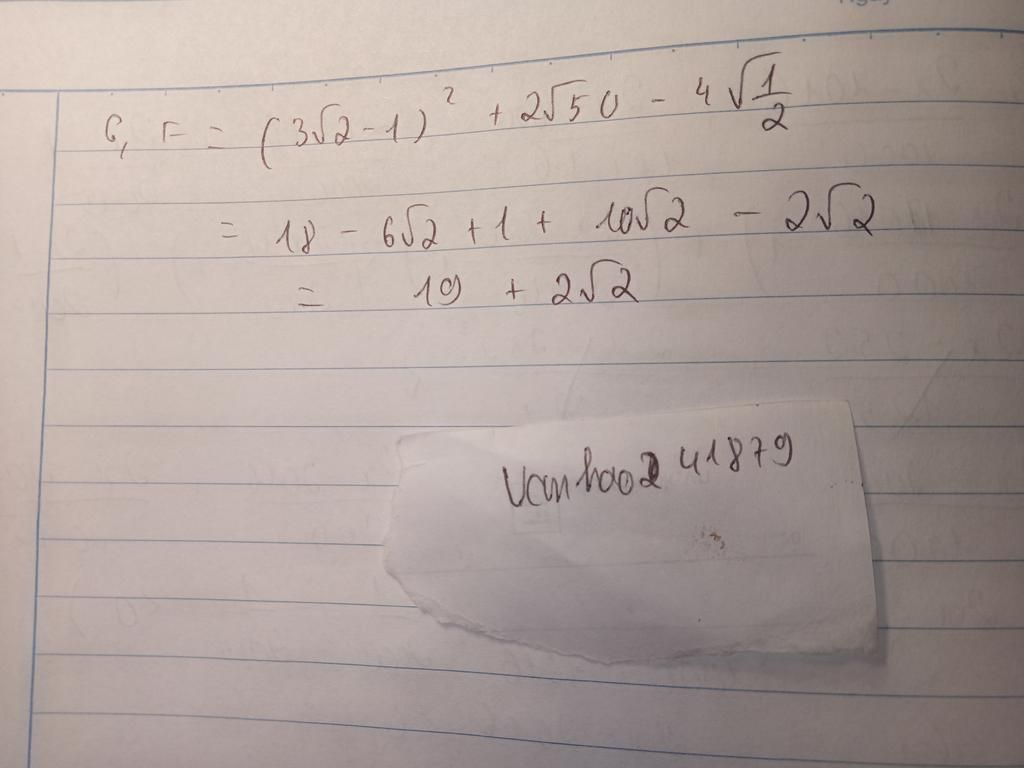 6, F = (3√2 - 1)² + 2√50 - 4√1/2
= 18 - 6√2 + 1 + 10√2 - 2√2
= 19 + 2√2
Vanhao2 41879